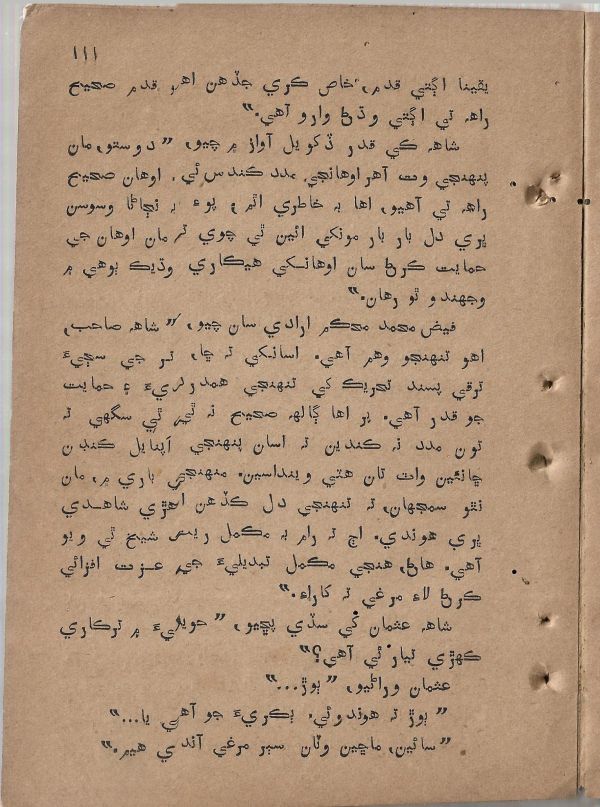 ١١١
يقينا اڳتي قدم، خاص ڪري جڏهن اهو قدم صحيح
راهه تي اڳتي وڌڻ وارو آهي.“
شاهه ڪي قدر ڏکويل آواز ۾ چيو، ”دوستو، مان
پنهنجي وت آهر اوهانجي مدد ڪندس ئي. اوهان صحيح
راهه تي آهيو، اها به خاطري اٿم، پوءِ به نڄاڻا وسوسن
ڀري دل بار بار مونکي ائين ٿي چوي ته مان اوهان جي
حمايت ڪرڻ سان اوهانکي هيڪاري وڌيڪ ٻوهي ۾
وجهندو ٿو رهان.“
فيض محمد محڪم ارادي سان چيو، ”شاهه صاحب،
اهو تنهنجو وهم آهي. اسانکي ته ڇا، ٿر جي سڄيءَ
ترقي پسند تحريڪ کي تنهنجي همدرديءَ ۽ حمايت
جو قدر آهي. پر اها ڳالهه صحيح نه ٿي، ٿي سگهي ته
تون مدد نه ڪندين ته اسان پنهنجي اپنايل ڪنڊن
ڇانئين واٽ تان هٽي وينداسين. منهنجي باري ۾، مان
نٿو سمجهان، ته تنهنجي دل ڪڏهن اهڙي شاهدي
ڀري هوندي. اڄ ته رام به مڪمل رينس شيخ ٿي ويو
آهي. هاڻ، هنجي مڪمل تبديليءَ جي عزت افزائي
ڪرڻ لاءِ مرغي ته ڪاراءِ.“
شاهه عثمان کي سڏي پڇيو، ”حويليءَ ۾ ترڪاري
ڪهڙي تيار ٿي آهي؟“
عثمان وراڻيو، ”ٻوڙ...“
”ٻوڙ ته هوندو ئي. ٻڪريءَ جو آهي يا...“
”سائين، ماڇين وٽان سٻر مرغي آندي هيم.“